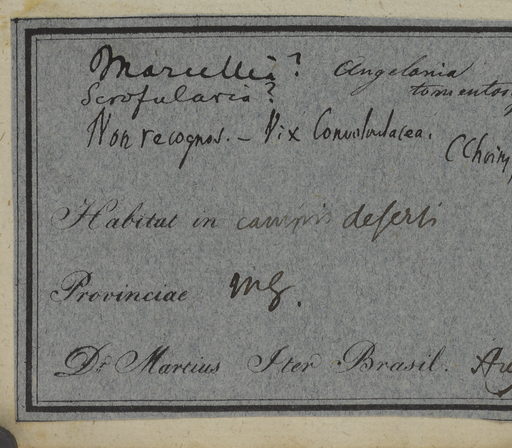 Marcellia? Angelonia
Scrofularia? tomentos
Non recognos. – Vix Convolvulacea.
(Choisy
Habitat in campis deserti
Provinciae MG.
Dr. Martius Iter Brasil. Au